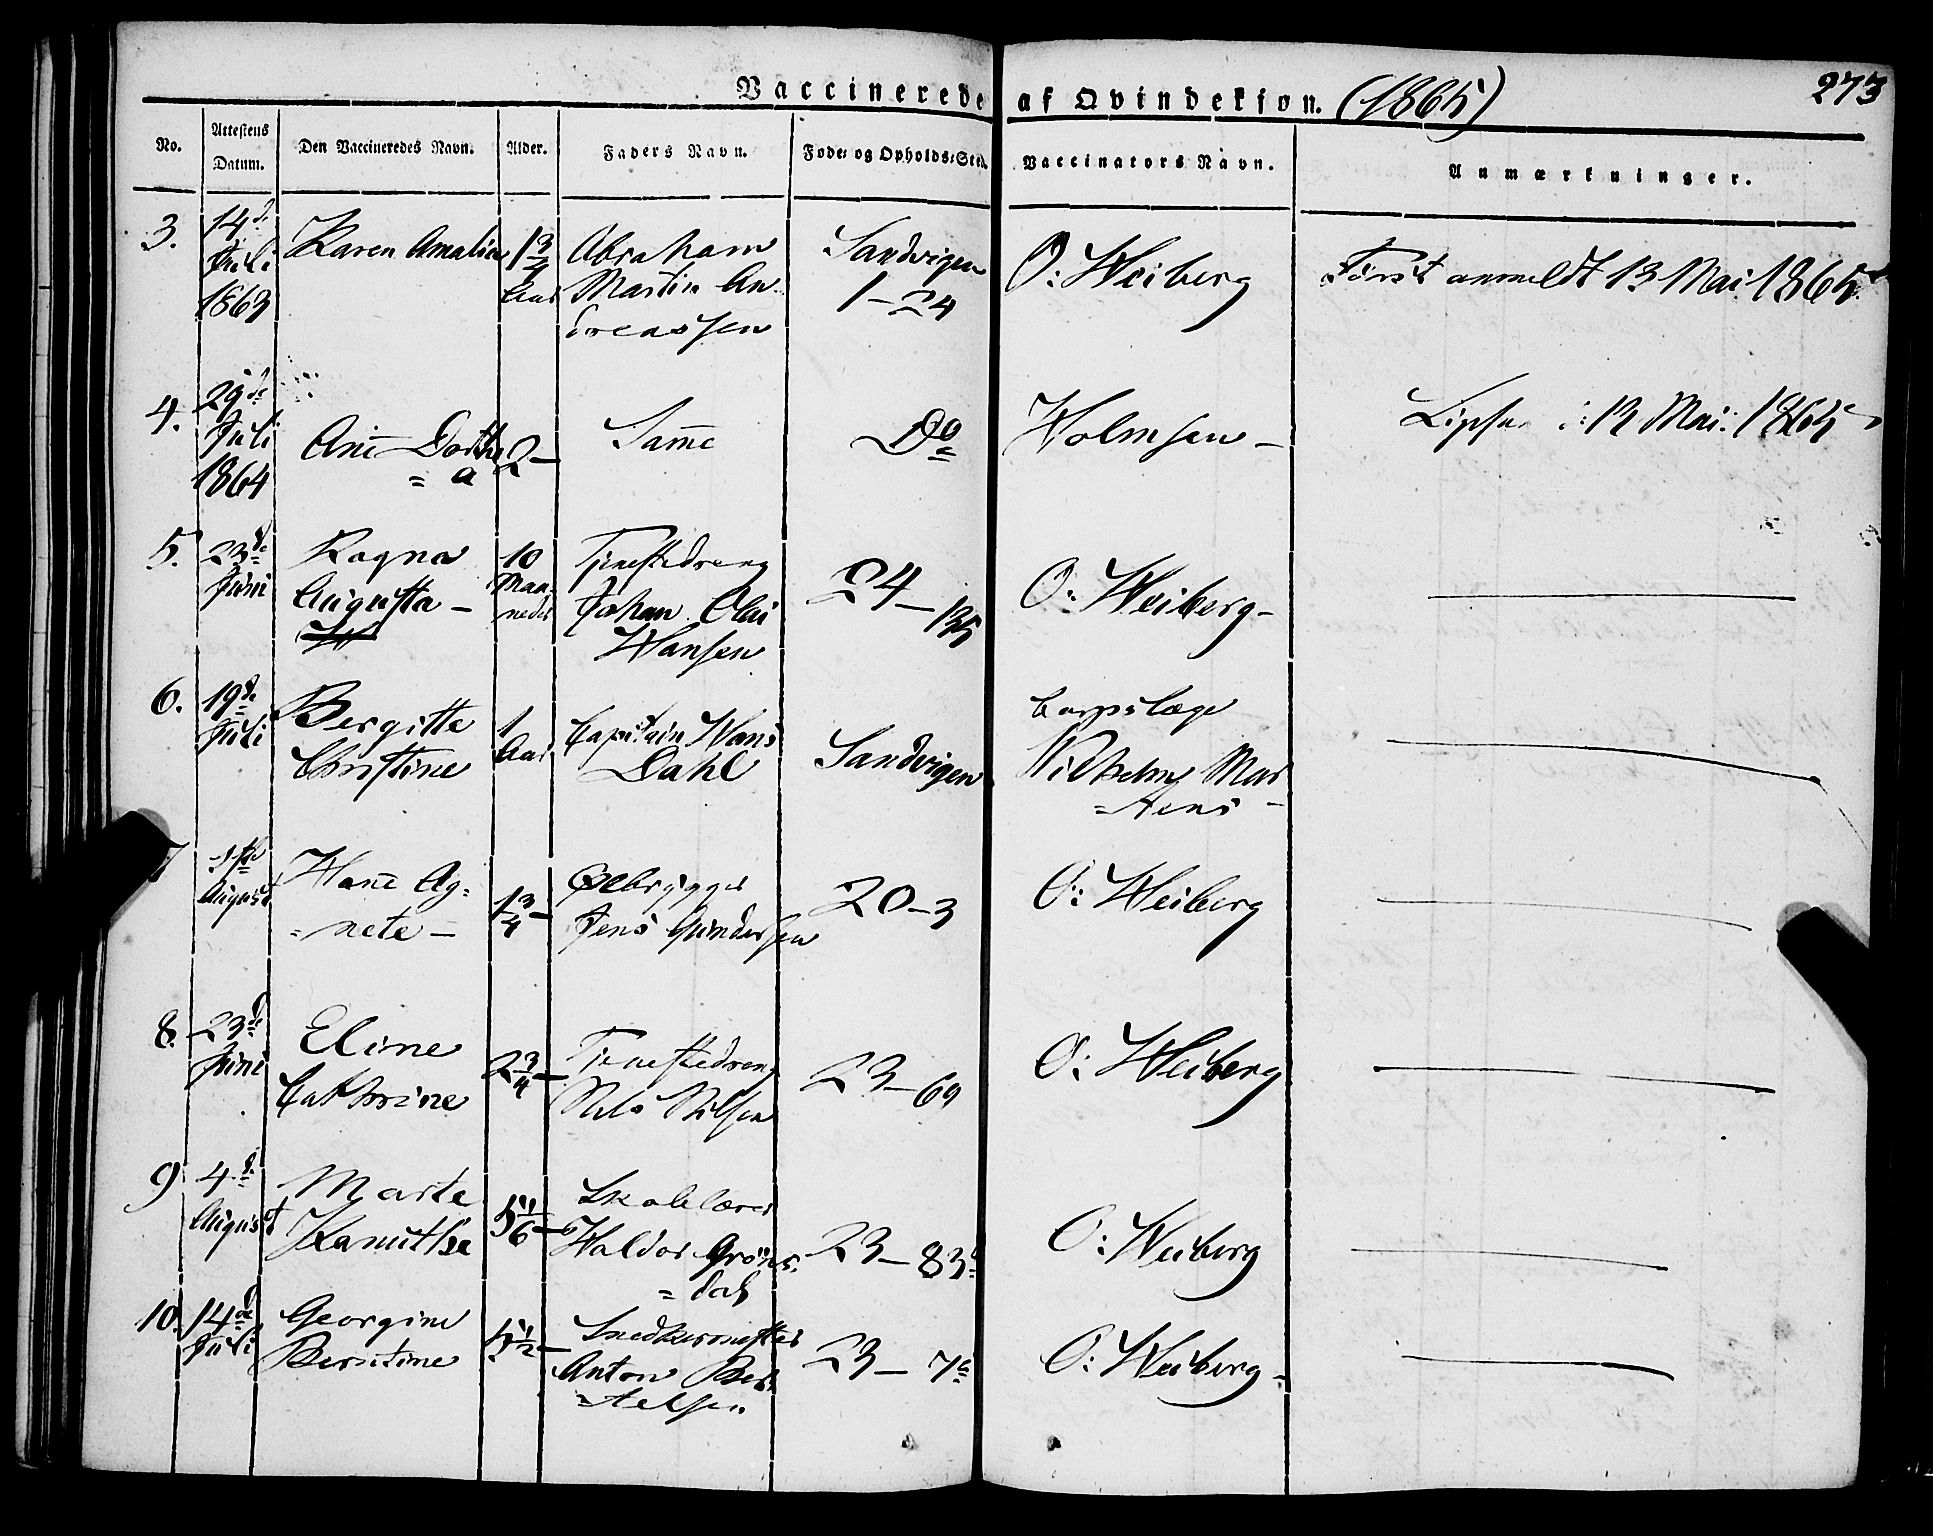 Vaccinerede af Qvindekjøn. (1865)
273
No. Attestens Datum. Den Vaccineredes Navn. Alder. Faders Navn. Føde- og Opholds-Sted. Vaccinators Navn. Anmærkninger.
3. 14d. Juli 1863 Karen Amalia 1 3/4 Aar Abraham Martin An dreassen Sandvigen 1-24 O: Weiberg Først anmeldt 13 Mai 1865
4. 29de Juli 1864 Ane Dorthe = a 2 - Same Do Holmsen - 12 Mai 1865
5. 23de Juni Ragna Augusta - 10 Maa- neder Tjenestedreng Johan Olai Hansen 24-135 O: Weiberg -
6. 19de Juli Bergitte Christine 1 Aar Capitain Hans Dahl Sandvigen Corpslæge Wilhelm Mar =tens -
7 1ste August Hane Ag= =nete - 1 3/4 - Ølbrygger Jens Gundersen 20-3 O: Weiberg
8. 23de Juni Eline Cathrine 2 3/4 - Tjenestedreng Nils Nilsen 23-69 O: Weiberg
9 4d. August Marte Kanutha 5 1/6 - Skolelærer Haldor Gröns= =dal 23-83 O: Weiberg
10. 14de Juli Georgine Berntine 5 1/2 - Snedkermester Anton Ber =telsen 23-7a O: Weiberg -